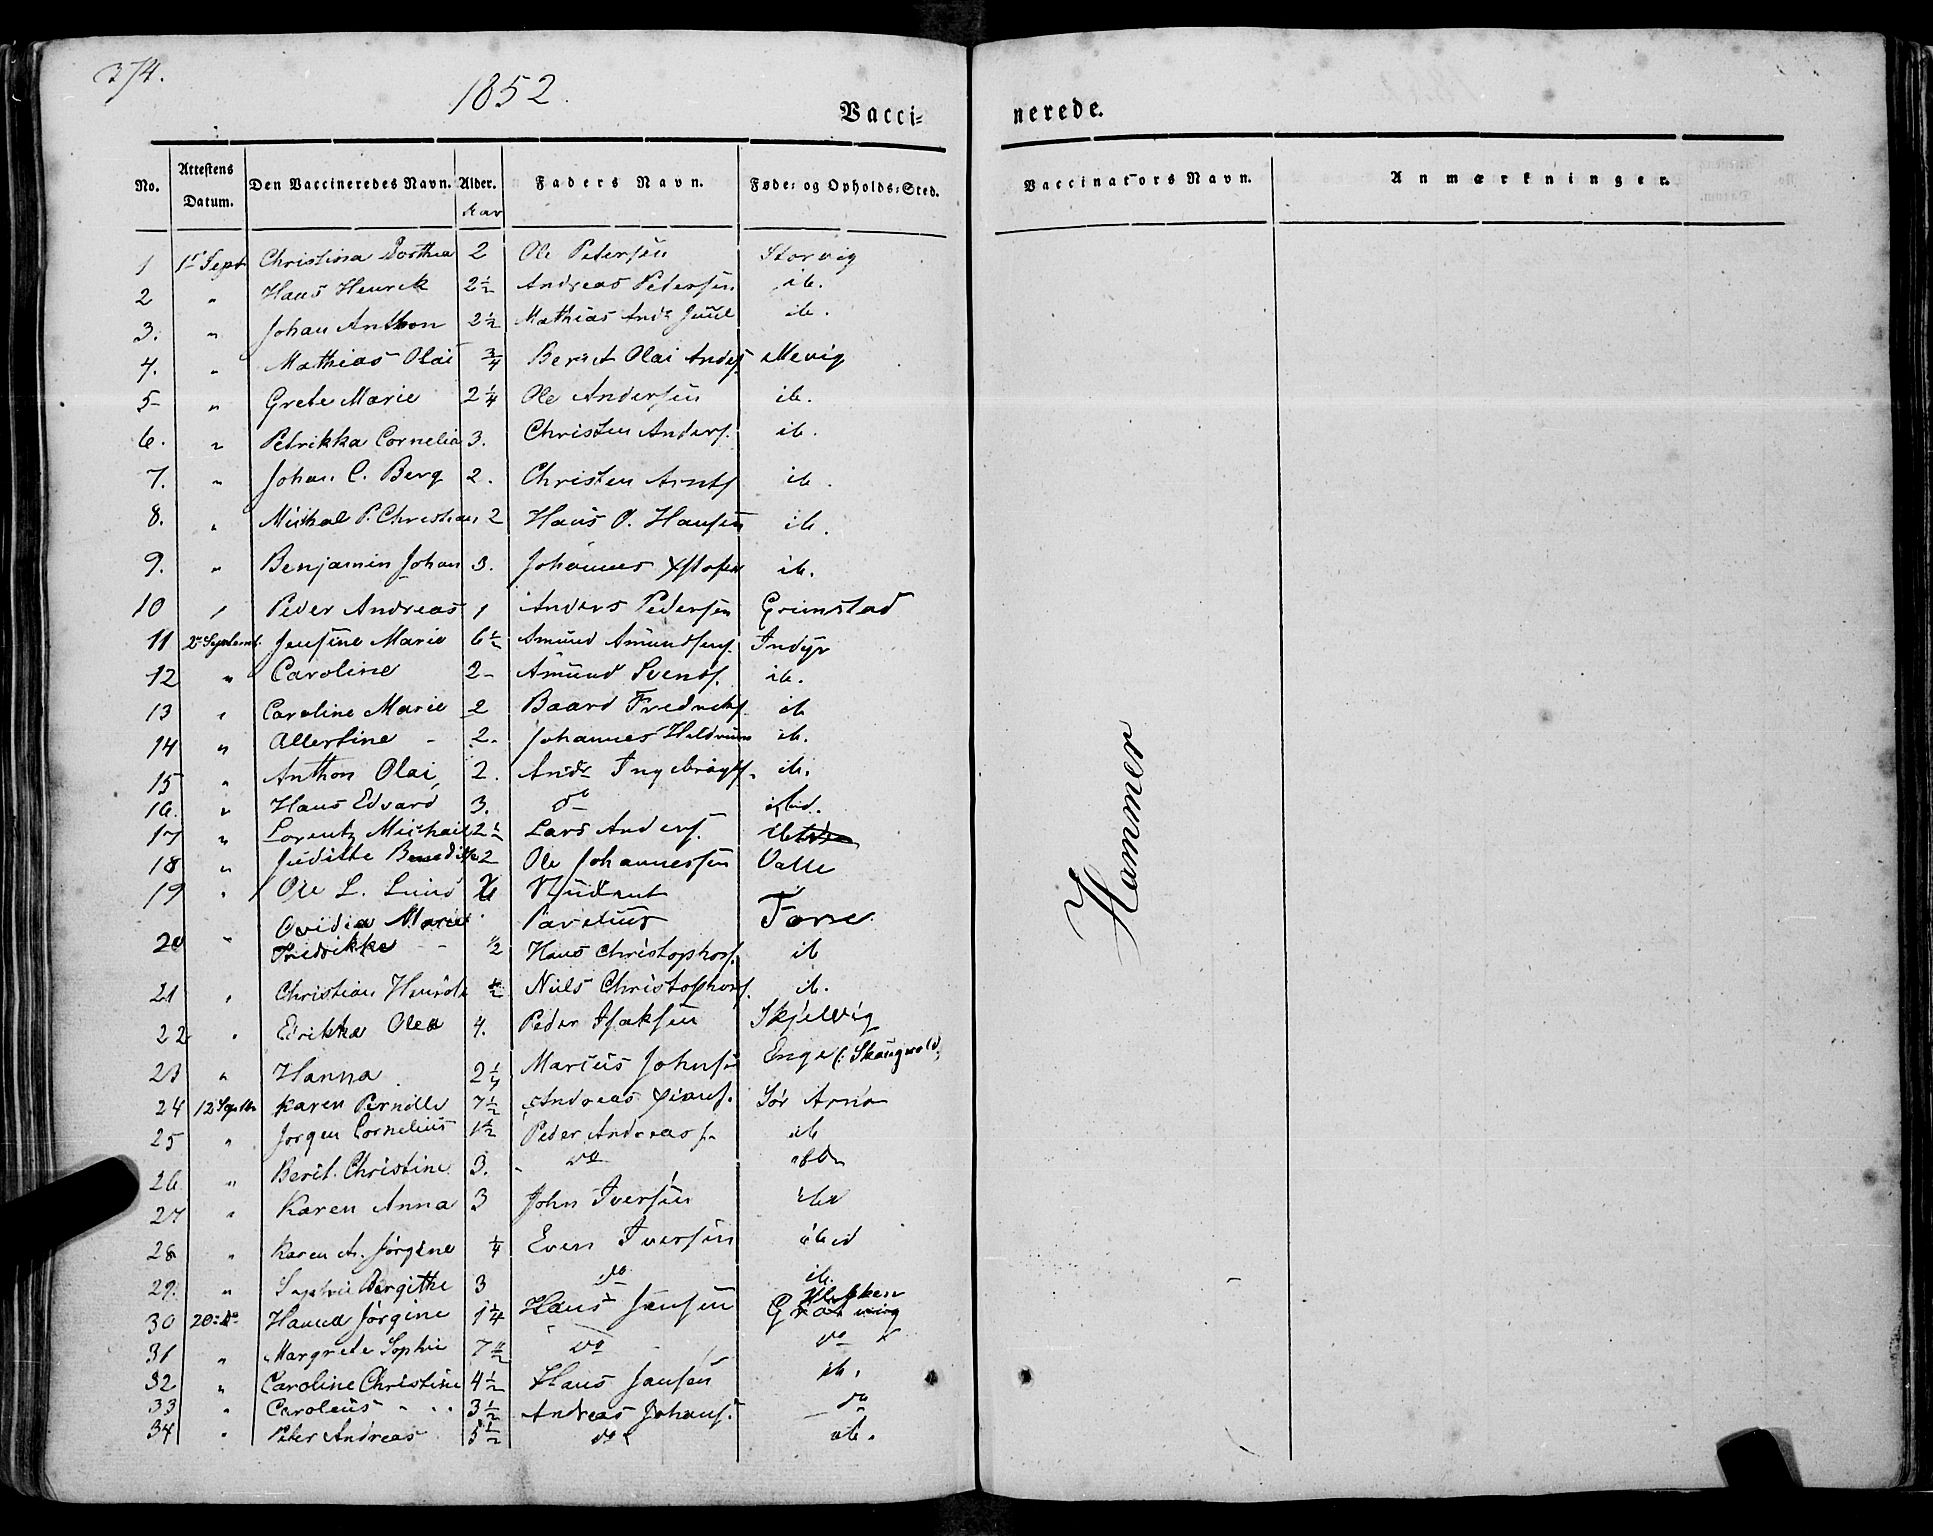 374.
1852.
Vacci-
nerede.
No. Attestens Datum. Den Vaccineredes Navn. Alder. Faders Navn. Føde- og Opholds-Sted. Vaccinators Navn. Anmærkninger.
Aar
1 1ste Sept Christina Dorthea 2 Ole Petersen Storvig
2 " Hans Henrik 2½ Andreas Pedersen ib.
3. " Johan Anthon 2½ Mathias Juul ib.
4. " Mathias Olai ¾ Bernt Olai Anders. Mevig
5 " Grete Marie 2¼ Ole Andersen ib.
6. " Petrikka Cornelia 3. Christen Anders. ib.
7. " Johan C. Berg 2. Christen Arnts ib.
8. " Michal P. Christian 2 Hans O. Hansen ib.
9. " Benjamin Johan 3. Johannes Xstofers ib.
10 " Peder Andreas 1 Anders Pedersen Grimstad
11 2 Septemb. Jensine Marie 6½ Amund Amundsen Indyr
12 " Caroline 2 Amund Svends. ib.
13 " Caroline Marie 2 Baard Fredriks. ib
14 " Allertine - 2. Johannes Hildrum ib.
15 " Anthon Olai 2. Ands Ingebrigts. ib.
16. " Hans Edvard 3. do ibid.
17 " Lorentz Michail 2½ Lars Anders. ib
18 " Juditte Benedikte 2 Ole Johannessen Valle
19 " Ole L. Lund Student
Ovidia Marie Parelius Forre
20 " Fredrikke - ½ Hans Christophers. ib
21 " Christian Henrik ½ Niels Christophers. ib.
22 " Erikka Olea 4. Peder Isaksen Skjelvig
23 " Hanna 2¼ Marcus Johnsen Enge (: Skaugvold
24 12 Septbr Karen Pernille 7½ Andreas Sør Arnø
25 " Jørgen Cornelius 1½ Peder Andreass. ib
26 " Berit Christine 3. do
27 " Karen Anna 3 John Iversen ibd
28 " Karen A. Jørgine ¼ Even Iversen ibid
29. " Sophie Bergithe 3 do ib.
30 20 do Hanna Jørgine 1¼ Hans Jensen
31 " Margrete Sophie 7½ do do
32 " Caroline Christine 4½ Hans Jansen ib.
33 " Caroleus 3½ Andreas Johans. do
34 " Peter Andreas 5½ do ib.
Hammer